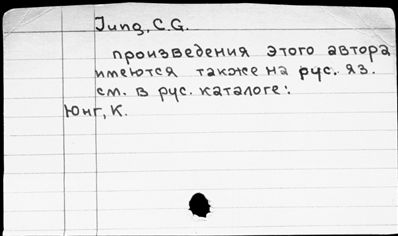 Jung, C.G.
произведения этого автора
имеются также на рус. яз.
см. в рус. каталоге:
Юнг, К.